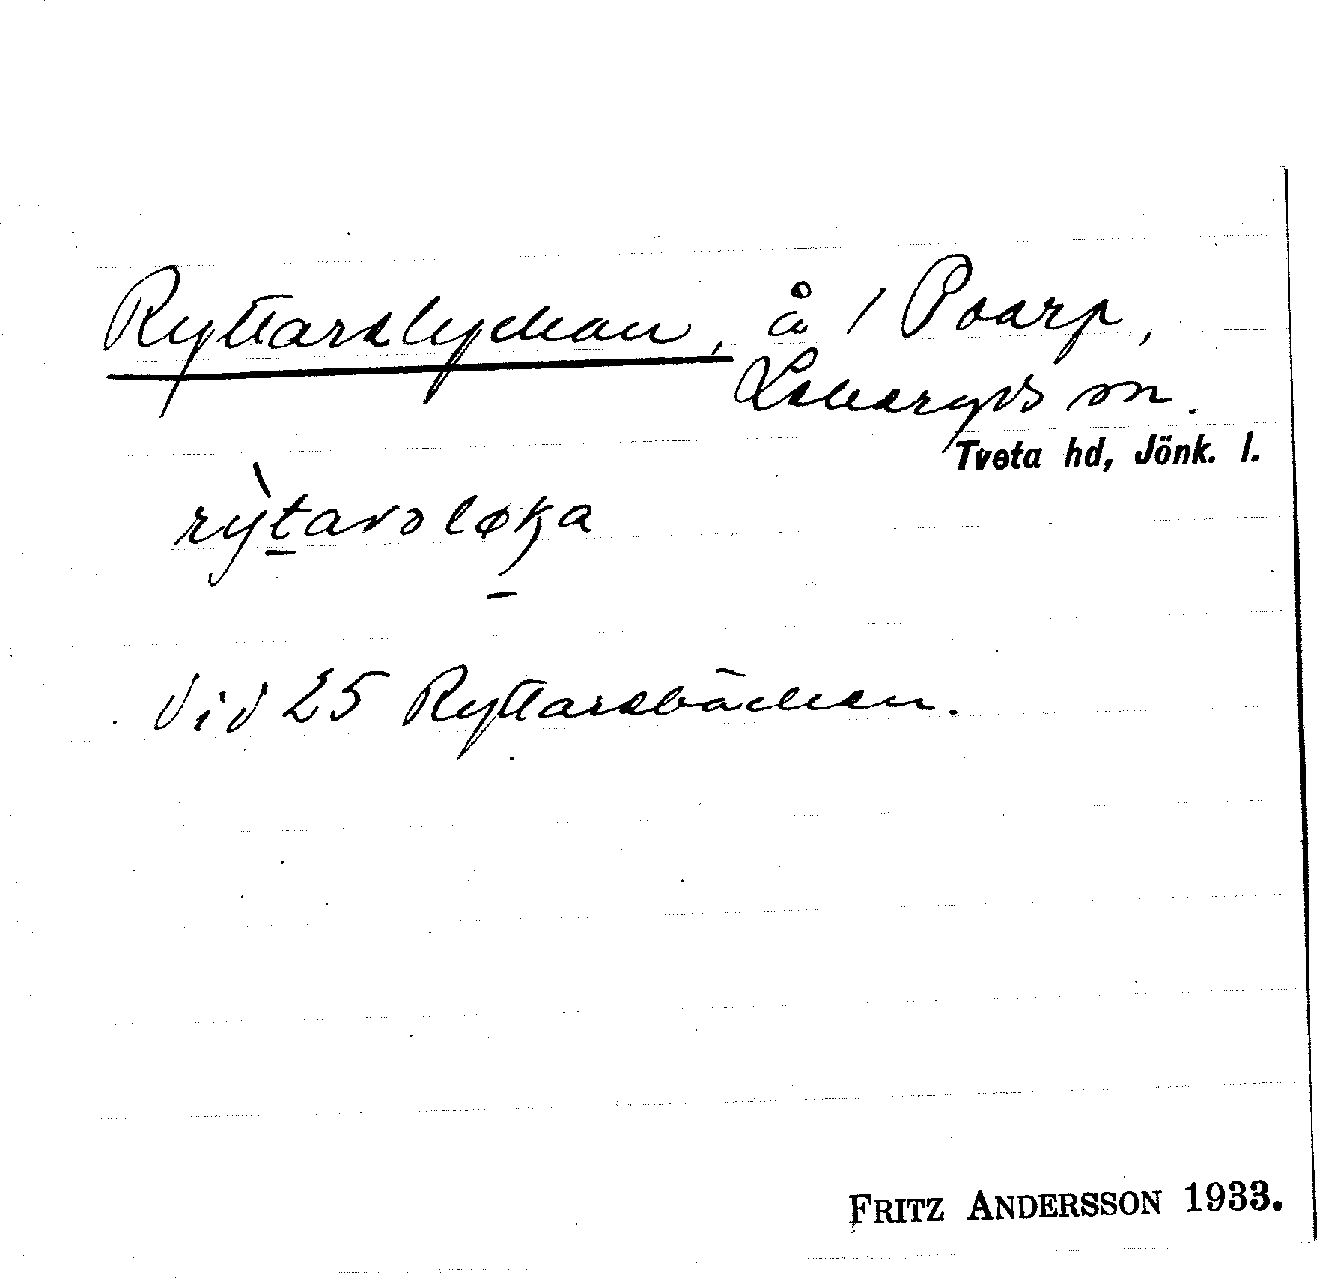 Ryttarslyckan, å / Poarp,
Lekeryds sn.
Tveta hd, Jönk. l.
rỳtarsløka
Vid 25 Ryttarsbäcken.
FRITZ ANDERSSON 1933.